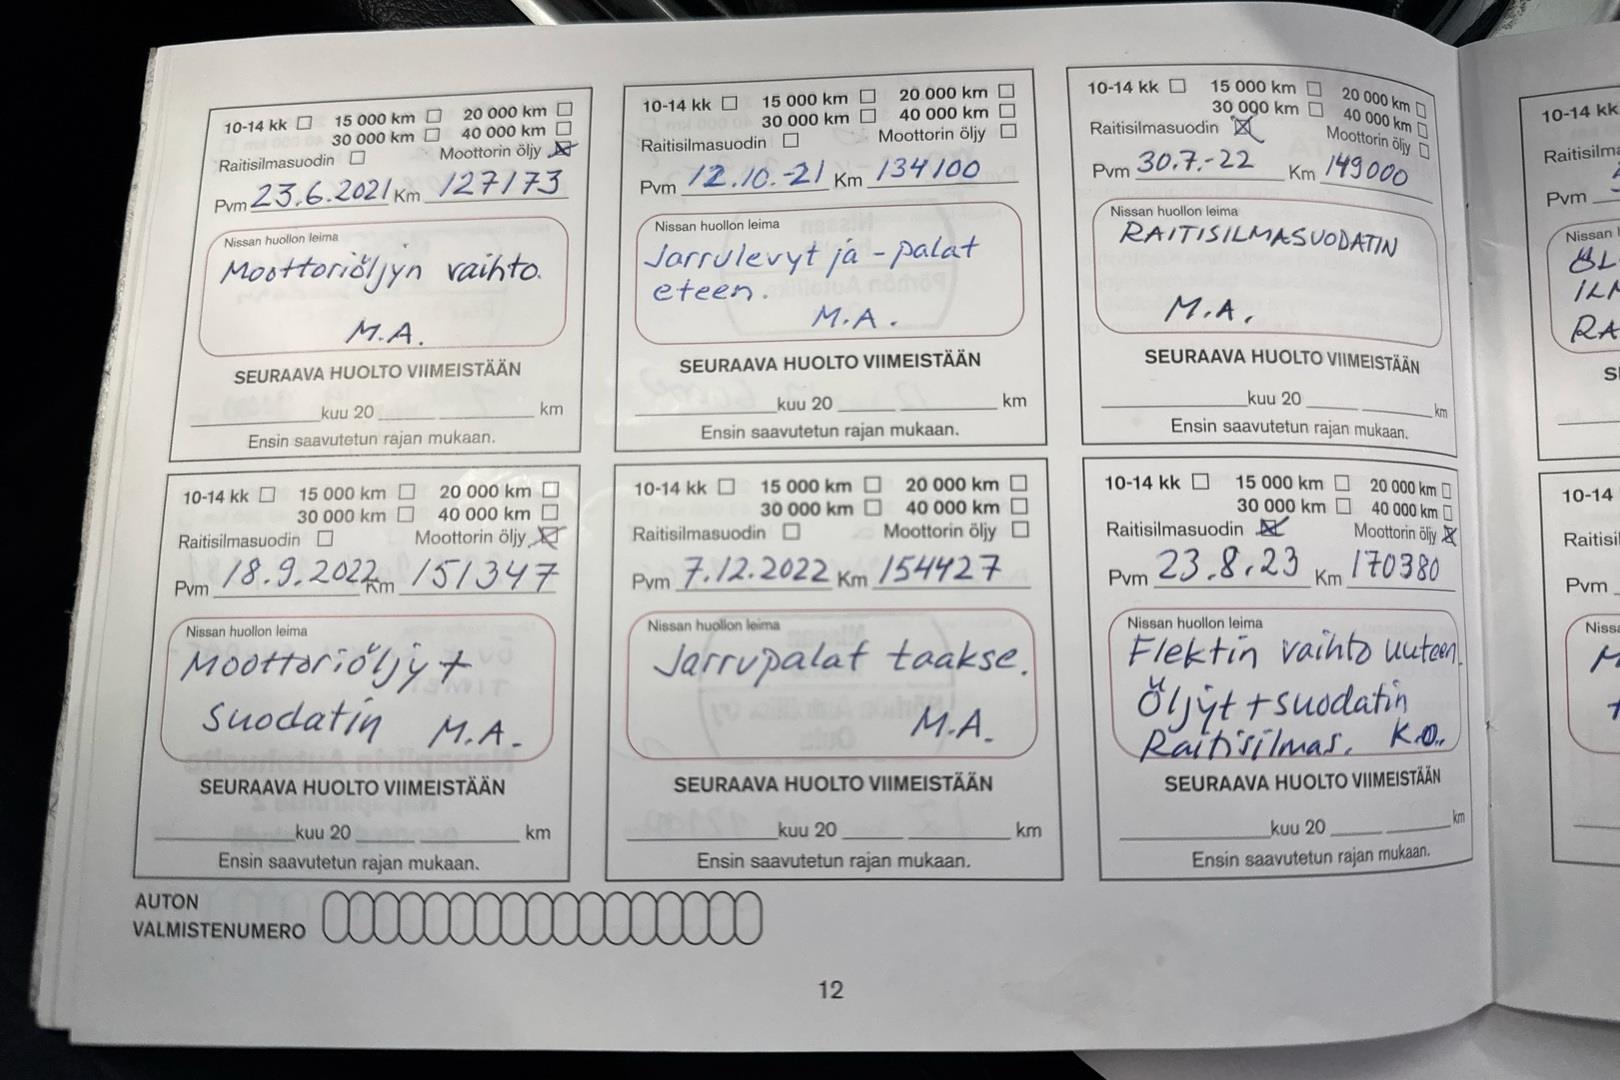 10-14 kk 15 000 km 20 000 km
30 000 km 40 000 km
Raitisilmasuodin Moottorin öljy
Pvm 23.6.2021 Km 127173
Nissan huollon leima
Moottoriöljyn vaihto.
M.A.
SEURAAVA HUOLTO VIIMEISTÄÄN
kuu 20 km
Ensin saavutetun rajan mukaan.
10-14 kk 15 000 km 20 000 km
30 000 km 40 000 km
Raitisilmasuodin Moottorin öljy
Pvm 12.10.-21 Km 134100
Nissan huollon leima
Jarrulevyt ja -palat
eteen.
M.A.
SEURAAVA HUOLTO VIIMEISTÄÄN
kuu 20 km
Ensin saavutetun rajan mukaan.
10-14 kk 15 000 km 20 000 km
30 000 km 40 000 km
Raitisilmasuodin Moottorin öljy
Pvm 30.7.-22 Km 149000
Nissan huollon leima
RAITISILMASUODATIN
M.A.
SEURAAVA HUOLTO VIIMEISTÄÄN
kuu 20 km
Ensin saavutetun rajan mukaan.
10-14 kk 15 000 km 20 000 km
30 000 km 40 000 km
Raitisilmasuodin Moottorin öljy
Pvm 18.9.2022 Km 151347
Nissan huollon leima
Moottoriöljy +
suodatin M.A.
SEURAAVA HUOLTO VIIMEISTÄÄN
kuu 20 km
Ensin saavutetun rajan mukaan.
10-14 kk 15 000 km 20 000 km
30 000 km 40 000 km
Raitisilmasuodin Moottorin öljy
Pvm 7.12.2022 Km 154427
Nissan huollon leima
Jarrupalat taakse.
M.A.
SEURAAVA HUOLTO VIIMEISTÄÄN
kuu 20 km
Ensin saavutetun rajan mukaan.
10-14 kk 15 000 km 20 000 km
30 000 km 40 000 km
Raitisilmasuodin Moottorin öljy
Pvm 23.8.23 Km 170380
Nissan huollon leima
Flektin vaihto uuteen.
Öljyt + suodatin
Raitisilmas. K.O.
SEURAAVA HUOLTO VIIMEISTÄÄN
kuu 20 km
Ensin saavutetun rajan mukaan.
AUTON
VALMISTENUMERO
12
10-14 kk
Pvm
Nissan
10-14
Pvm